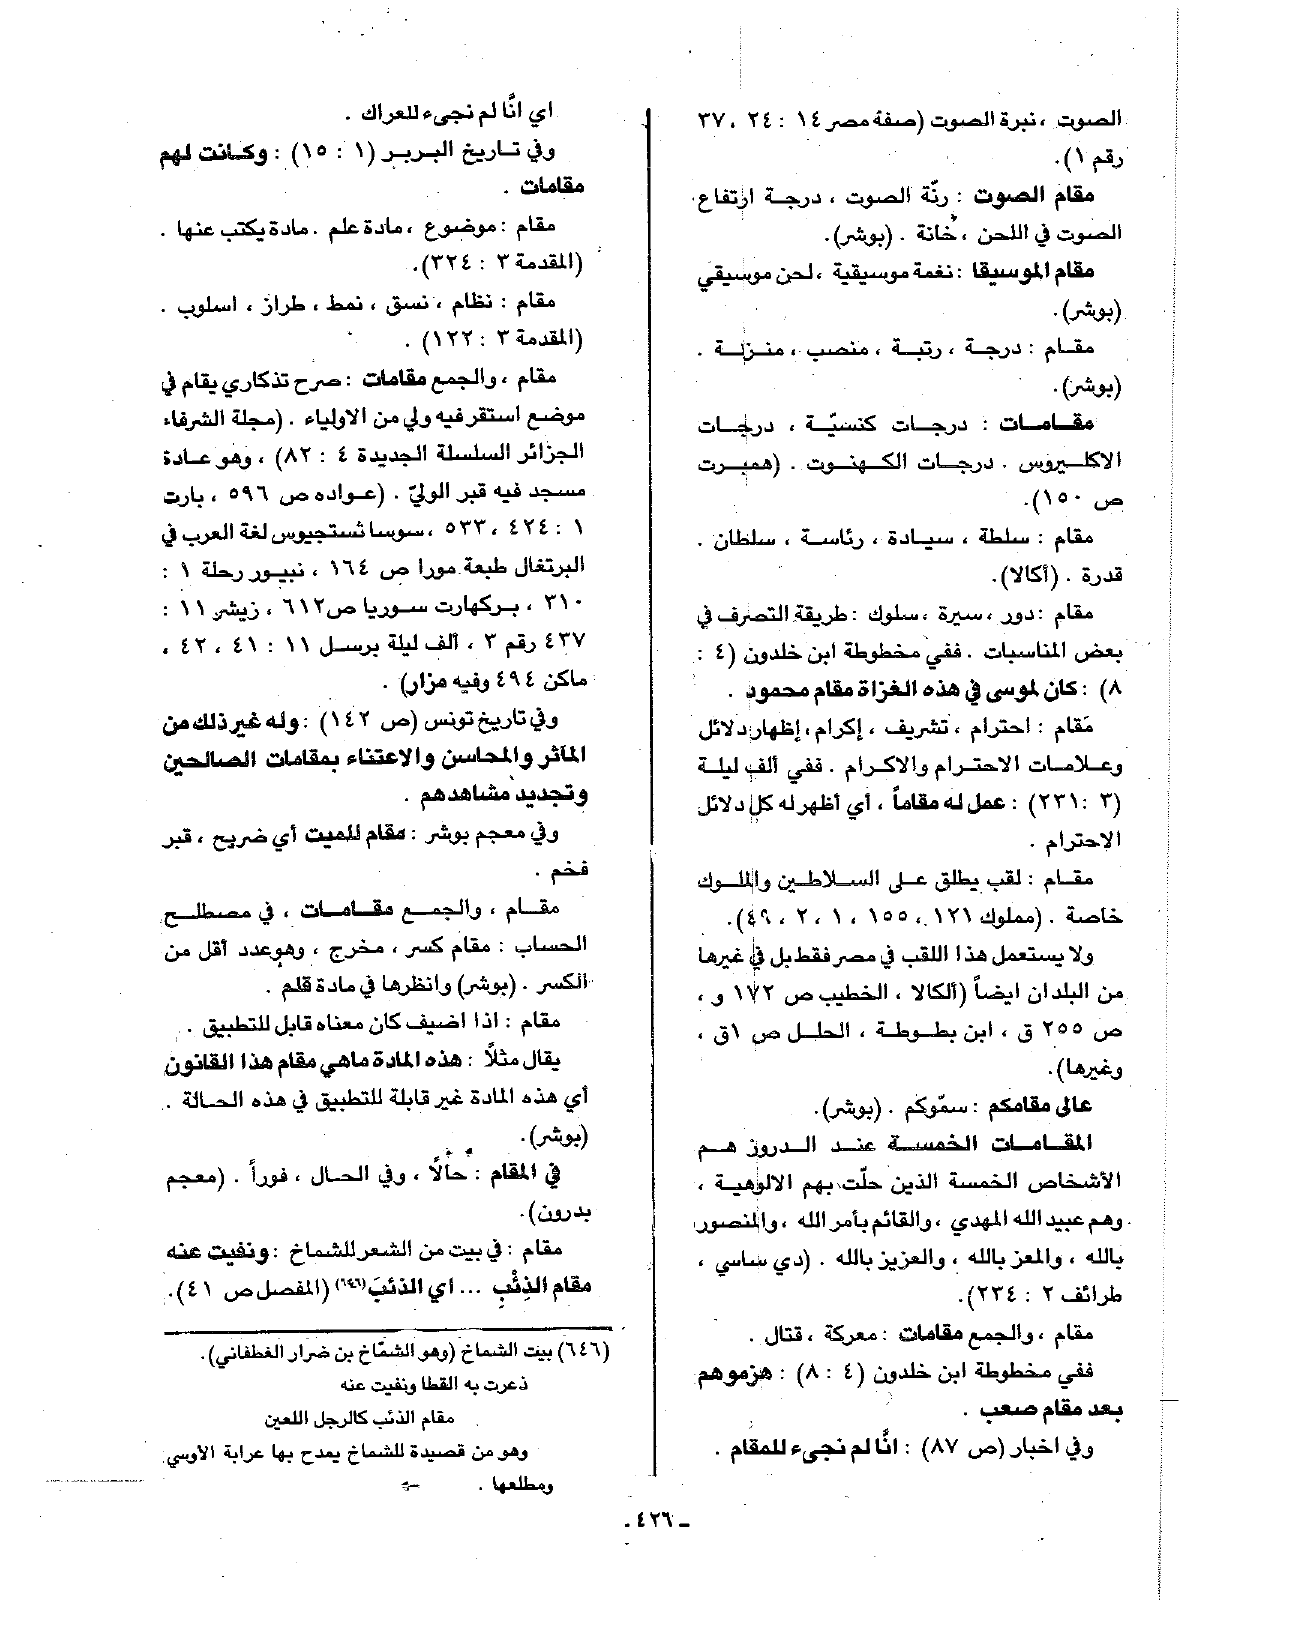 الصوت ، نبرة الصوت (صفة مصر ١٤ : ٢٤ ، ٢٧
رقم ١).
مقام الصوت : رنّة الصوت ، درجة ارتفاع
الصوت في اللحن ، خانة . (بوشر).
مقام الموسيقا : نغمة موسيقية ، لحن موسيقي
(بوشر).
مقام : درجة ، رتبة ، منصب ، منزلة .
(بوشر).
مقامات : درجات كنسيّة ، درجات
الاكليروس . درجات الكهنوت . (همبرت
ص ١٥٠).
مقام : سلطة ، سيادة ، رئاسة ، سلطان .
قدرة . (ألكالا).
مقام : دور ، سيرة ، سلوك : طريقة التصرف في
بعض المناسبات . ففي مخطوطة ابن خلدون (٤ :
٨) : كان لموسى في هذه الغزاة مقام محمود .
مَقام : احترام ، تشريف ، إكرام ، إظهار دلائل
وعلامات الاحترام والاكرام . ففي ألف ليلة
(٣ : ٢٣١) : عمل له مقاماً ، أي أظهر له كل دلائل
الاحترام .
مقام : لقب يطلق على السلاطين والملوك
خاصة . (مملوك ١٢١ ، ١٥٥ ، ١ ، ٢ ، ٤٩).
ولا يستعمل هذا اللقب في مصر فقط بل في غيرها
من البلدان ايضاً (ألكالا ، الخطيب ص ١٧٢ و ،
ص ٢٥٥ ق ، ابن بطوطة ، الحلل ص ١ق ،
وغيرها).
عالى مقامكم : سموّكم . (بوشر).
المقامات الخمسة عند الدروز هم
الأشخاص الخمسة الذين حلّت بهم الالوهية ،
وهم عبيد الله المهدي ، والقائم بأمر الله ، والمنصور
بالله ، والمعز بالله ، والعزيز بالله . (دي ساسي ،
طرائف ٢ : ٢٣٤).
مقام ، والجمع مقامات : معركة ، قتال .
ففي مخطوطة ابن خلدون (٤ : ٨) : هزموهم
بعد مقام صعب .
وفي اخبار (ص ٨٧) : انَّا لم نجيء للمقام .
اي انَّا لم نجيء للعراك .
وفي تاريخ البربر (١ : ١٥) : وكانت لهم
مقامات .
مقام : موضوع ، مادة علم . مادة يكتب عنها .
(المقدمة ٣ : ٣٢٤).
مقام : نظام ، نسق ، نمط ، طراز ، اسلوب .
(المقدمة ٣ : ١٢٢) .
مقام ، والجمع مقامات : صرح تذكاري يقام في
موضع استقر فيه ولي من الاولياء . (مجلة الشرفاء
الجزائر السلسلة الجديدة ٤ : ٨٢) ، وهو عادة
مسجد فيه قبر الوليّ . (عواده ص ٥٩٦ ، بارت
١ : ٤٢٤ ، ٥٣٣ ، سوسا ثستجيوس لغة العرب في
البرتغال طبعة مورا ص ١٦٤ ، نيبور رحلة ١ :
٣١٠ ، بركهارت سوريا ص ٦١٢ ، زيشر ١١ :
٤٣٧ رقم ٣ ، ألف ليلة برسل ١١ : ٤١ ، ٤٢ ،
ماكن ٤٩٤ وفيه مزار) .
وفي تاريخ تونس (ص ١٤٢) : وله غير ذلك من
المآثر والمحاسن والاعتناء بمقامات الصالحين
وتجديد مشاهدهم .
وفي معجم بوشر : مقام للميت أي ضريح ، قبر
فخم .
مقام ، والجمع مقامات ، في مصطلح
الحساب : مقام كسر ، مخرج ، وهو عدد أقل من
الكسر . (بوشر) وانظرها في مادة قلم .
مقام : اذا اضيف كان معناه قابل للتطبيق .
يقال مثلاً : هذه المادة ماهي مقام هذا القانون
أي هذه المادة غير قابلة للتطبيق في هذه الحالة .
(بوشر).
في المقام : حالًا ، وفي الحال ، فوراً . (معجم
بدرون).
مقام : في بيت من الشعر للشماخ : ونفيت عنه
مقام الذِئْبِ ... اي الذئبَ (٦٤٦) (المفصل ص ٤١).
(٦٤٦) بيت الشماخ (وهو الشمّاخ بن ضرار الغطفاني).
ذعرت به القطا ونفيت عنه
مقام الذئب كالرجل اللعين
وهو من قصيدة للشماخ يمدح بها عرابة الاوسي
ومطلعها .
ـ ٤٢٦ ـ